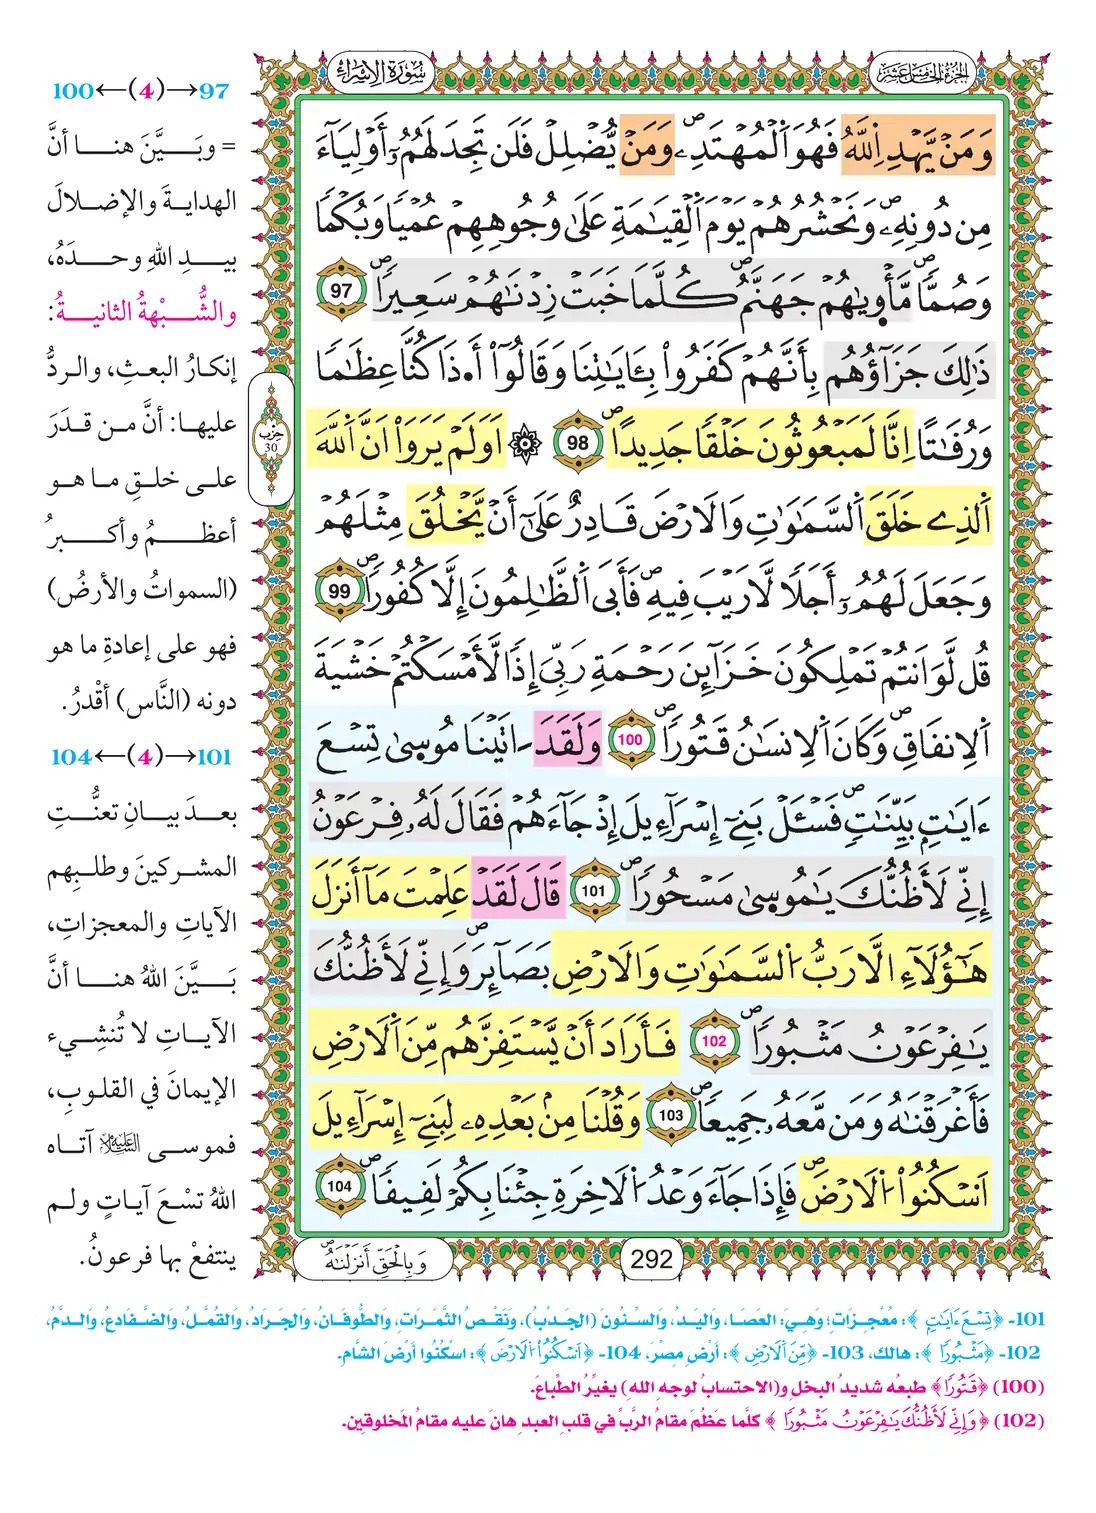 الجزء الخامس عشر
سورة الإسراء
وَمَنْ يَّهْدِ اِللَّهُ فَهُوَ اَلْمُهْتَدِۦ وَمَنْ يُّضْلِلْ فَلَن تَجِدَ لَهُمُۥٓ أَوْلِيَآءَ
مِن دُونِهِۦ وَنَحْشُرُهُمْ يَوْمَ اَلْقِيَٰمَةِ عَلَىٰ وُجُوهِهِمْ عُمْيٗا وَبُكْمٗا
وَصُمّٗا مَّأْوٜيٰهُمْ جَهَنَّمُ كُلَّمَا خَبَتْ زِدْنَٰهُمْ سَعِيرٗا 97
ذَٰلِكَ جَزَآؤُهُم بِأَنَّهُمْ كَفَرُواْ بِـَٔايَٰتِنَا وَقَالُوٓاْ أَ.ذَا كُنَّا عِظَٰمٗا
وَرُفَٰتًا اِنَّا لَمَبْعُوثُونَ خَلْقٗا جَدِيدًا 98 ۞ اَوَلَمْ يَرَوَاْ اَنَّ اَللَّهَ
اَلَّذِے خَلَقَ اَلسَّمَٰوَٰتِ وَالَارْضَ قَادِرٌ عَلَىٰٓ أَنْ يَّخْلُقَ مِثْلَهُمْ
وَجَعَلَ لَهُمُۥٓ أَجَلٗا لَّا رَيْبَ فِيهِ فَأَبَى اَلظَّٰلِمُونَ إِلَّا كُفُورٗا 99
قُل لَّوَ اَنتُمْ تَمْلِكُونَ خَزَآئِنَ رَحْمَةِ رَبِّيَ إِذٗا لَّأَمْسَكْتُمْ خَشْيَةَ
اَلِانفَاقِ وَكَانَ اَلِانسَٰنُ قَتُورٗا 100 وَلَقَدَ اٰتَيْنَا مُوسٜىٰ تِسْعَ
ءَايَٰتِۢ بَيِّنَٰتٖ فَسْـَٔلْ بَنِےٓ إِسْرَآءِيلَ إِذْ جَآءَهُمْ فَقَالَ لَهُۥ فِرْعَوْنُ
إِنِّے لَأَظُنُّكَ يَٰمُوسٜىٰ مَسْحُورٗا 101 قَالَ لَقَدْ عَلِمْتَ مَآ أَنزَلَ
هَٰٓؤُلَآءِ الَّا رَبُّ اُلسَّمَٰوَٰتِ وَالَارْضِ بَصَآئِرَ وَإِنِّے لَأَظُنُّكَ
يَٰفِرْعَوْنُ مَثْبُورٗا 102 فَأَرَادَ أَنْ يَّسْتَفِزَّهُم مِّنَ اَلَارْضِ
فَأَغْرَقْنَٰهُ وَمَن مَّعَهُۥ جَمِيعٗا 103 وَقُلْنَا مِنۢ بَعْدِهِۦ لِبَنِےٓ إِسْرَآءِيلَ
اَسْكُنُواْ اُلَارْضَ فَإِذَا جَآءَ وَعْدُ اُلَاخِرَةِ جِئْنَا بِكُمْ لَفِيفٗا 104
292
وَبِالْحَقِّ أَنزَلْنَٰهُ
حزب
30
97→(4)←100
= وبَيَّنَ هنا أنَّ
الهدايةَ والإضلالَ
بيدِ اللهِ وحدَهُ،
والشُّبْهةُ الثانيةُ:
إنكارُ البعثِ، والردُّ
عليها: أنَّ من قدَرَ
على خلقِ ما هو
أعظمُ وأكبرُ
(السمواتُ والأرضُ)
فهو على إعادةِ ما هو
دونه (النَّاس) أقْدرُ.
101→(4)←104
بعدَ بيانِ تعنُّتِ
المشركينَ وطلبِهم
الآياتِ والمعجزاتِ،
بَيَّنَ اللهُ هنا أنَّ
الآياتِ لا تُنشِيء
الإيمانَ في القلوبِ،
فموسى عليه السلام آتاه
اللهُ تسْعَ آياتٍ ولم
ينتفعْ بها فرعونُ.
101- ﴿تِسْعَ ءَايَٰتِۢ﴾: مُعْجِزاتٍ؛ وَهِيَ: العَصَا، وَاليَدُ، وَالسِّنُونَ (الجَدْبُ)، وَنَقْصُ الثَّمَرَاتِ، وَالطُّوفَانُ، وَالجَرَادُ، وَالقُمَّلُ، وَالضَّفَادِعُ، وَالدَّمُ،
102- ﴿مَثْبُورٗا﴾: هالكًا، 103- ﴿مِّنَ اَلَارْضِ﴾: أرضِ مصرَ، 104- ﴿اَسْكُنُواْ اُلَارْضَ﴾: اسكُنُوا أرْضَ الشَّامِ.
(100) ﴿قَتُورٗا﴾ طبعُه شديدُ البخلِ و(الاحتسابُ لوجهِ اللهِ) يغيِّرُ الطِّباعَ.
(102) ﴿وَإِنِّے لَأَظُنُّكَ يَٰفِرْعَوْنُ مَثْبُورٗا﴾ كلَّما عظُمَ مقامُ الرَّبِّ في قلبِ العبدِ هانَ عليه مقامُ المَخلوقِين.